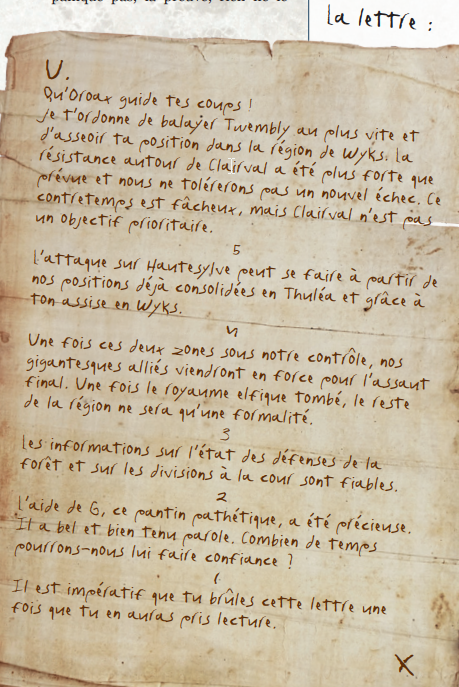 la lettre :
U.
Qu'Oroax guide tes coups !
Je t'ordonne de balayer Twembly au plus vite et
d'asseoir ta position dans la région de Wyks. La
résistance autour de Clairval a été plus forte que
prévue et nous ne tolérerons pas un nouvel échec. Ce
contretemps est fâcheux, mais Clairval n'est pas
un objectif prioritaire.
5
L'attaque sur Hautesylve peut se faire à partir de
nos positions déjà consolidées en Thuléa et grâce à
ton assise en Wyks.
4
Une fois ces deux zones sous notre contrôle, nos
gigantesques alliés viendront en force pour l'assaut
final. Une fois le royaume elfique tombé, le reste
de la région ne sera qu'une formalité.
3
Les informations sur l'état des défenses de la
forêt et sur les divisions à la cour sont fiables.
2
L'aide de G, ce pantin pathétique, a été précieuse.
Il a bel et bien tenu parole. Combien de temps
pourrons-nous lui faire confiance ?
1
Il est impératif que tu brûles cette lettre une
fois que tu en auras pris lecture.
X